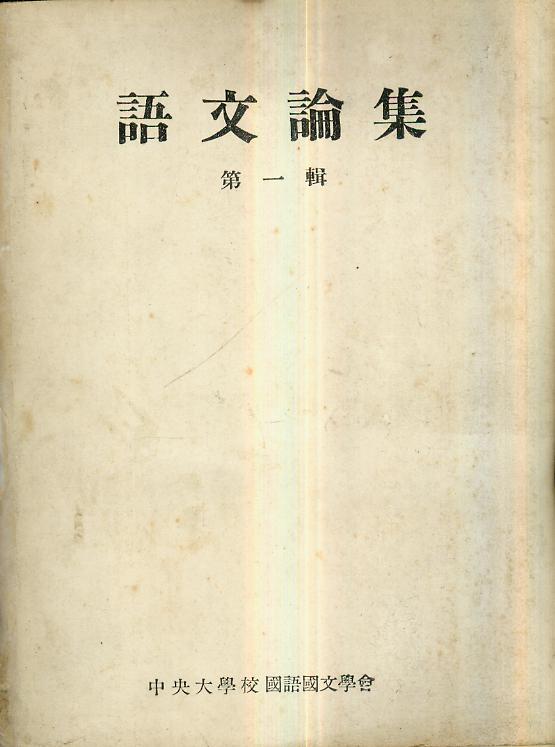 語文論集
第一輯
中央大學校國語國文學會